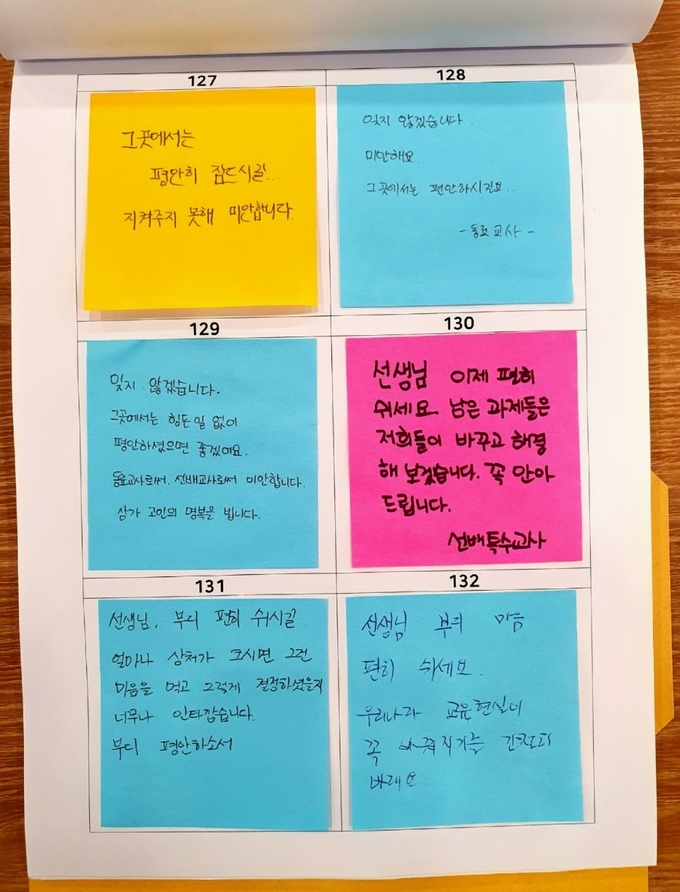 127
그곳에서는
평안히 잠드시길...
지켜주지 못해 미안합니다.
128
잊지 않겠습니다.
미안해요.
그곳에서는 편안하시긴요..
-동료교사-
129
잊지 않겠습니다.
그곳에서는 힘든일 없이
평안하셨으면 좋겠어요.
동료교사로써. 선배교사로써 미안합니다.
삼가 고인의 명복을 빕니다.
130
선생님 이제 편히
쉬세요. 남은 과제들은
저희들이 바꾸고 해결
해 보겠습니다. 꼭 안아
드립니다.
선배특수교사
131
선생님, 부디 편히 쉬시길
얼마나 상처가 크시면 그런
마음을 먹고 그렇게 결정하셨을지
너무나 안타깝습니다.
부디 평안하소서
132
선생님 부디 마음
편히 쉬세요.
우리나라 교육현실이
꼭 바뀌지기를 간절히
바래요